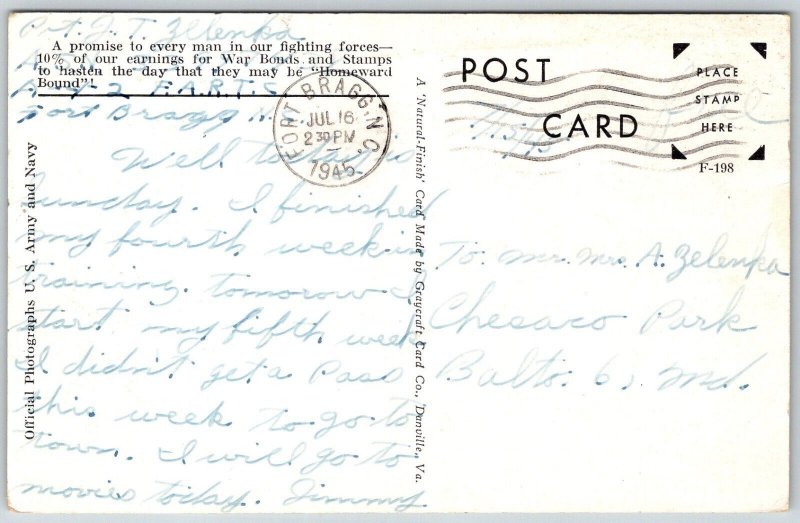 Pvt. J. T. Zelenka
A promise to every man in our fighting forces—
10% of our earnings for War Bonds and Stamps
to hasten the day that they may be "Homeward
Bound"!
F.A.R.T.S.
Fort Bragg N.
Well today is
Sunday. I finished
my fourth week in
training. tomorow I
start my fifth week
I didn't get a Pass
this week to go to
town. I will go to
movies today. Jimmy
Official Photographs U. S. Army and Navy
FORT BRAGG, N.C.
JUL 16
2 30 PM
1945
A 'Natural-Finish' Card Made by Graycraft Card Co., Danville, Va.
POST
CARD
PLACE
STAMP
HERE
F-198
7/15/45
To Mr. Mrs. A. Zelenka
Chesaco Park
Balto. 6, Md.